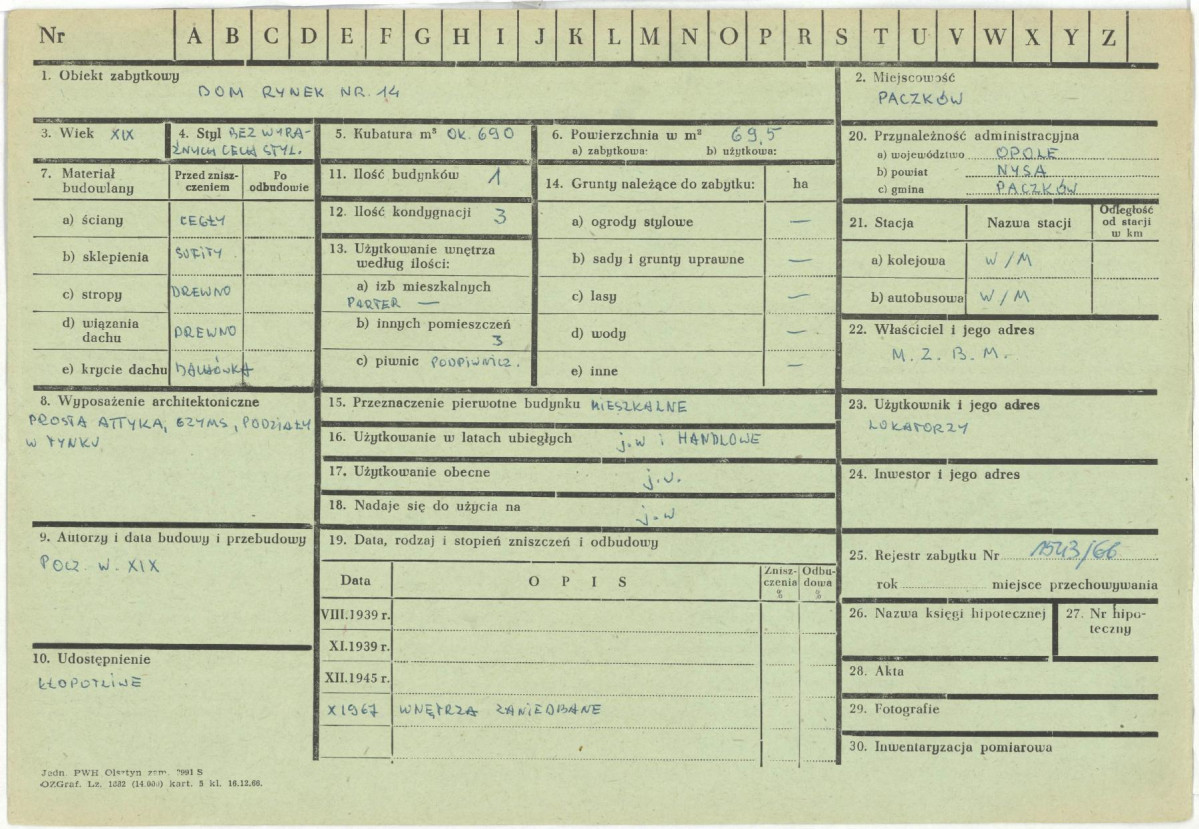 Nr A B C D E F G H I J K L M N O P R S T U V W X Y Z
1. Obiekt zabytkowy
DOM RYNEK NR. 14
2. Miejscowość
PACZKÓW
3. Wiek XIX
4. Styl BEZ WYRA-
ŹNYCH CECH STYL.
5. Kubatura m³ OK. 690
6. Powierzchnia w m² 69,5
a) zabytkowa: b) użytkowa:
20. Przynależność administracyjna
a) województwo OPOLE
b) powiat NYSA
c) gmina PACZKÓW
7. Materiał
budowlany
Przed znisz-
czeniem
Po
odbudowie
a) ściany CEGŁY
b) sklepienia SUFITY
c) stropy DREWNO
d) wiązania
dachu DREWNO
e) krycie dachu DACHÓWKA
11. Ilość budynków 1
12. Ilość kondygnacji 3
13. Użytkowanie wnętrza
według ilości:
a) izb mieszkalnych
PARTER —
b) innych pomieszczeń
3
c) piwnic PODPIWNICZ.
14. Grunty należące do zabytku: ha
a) ogrody stylowe —
b) sady i grunty uprawne —
c) lasy —
d) wody —
e) inne —
21. Stacja Nazwa stacji
Odległość
od stacji
w km
a) kolejowa W/M
b) autobusowa W/M
22. Właściciel i jego adres
M. Z. B. M.
8. Wyposażenie architektoniczne
PROSTA ATTYKA, GZYMS, PODZIAŁY
W TYNKU
15. Przeznaczenie pierwotne budynku MIESZKALNE
16. Użytkowanie w latach ubiegłych j.w i HANDLOWE
17. Użytkowanie obecne j.w.
18. Nadaje się do użycia na j.w
23. Użytkownik i jego adres
LOKATORZY
24. Inwestor i jego adres
9. Autorzy i data budowy i przebudowy
POCZ. W. XIX
19. Data, rodzaj i stopień zniszczeń i odbudowy
Data OPIS
Znisz-
czenia
%
Odbu-
dowa
%
VIII.1939 r.
XI.1939 r.
XII.1945 r.
X 1967 WNĘTRZA ZANIEDBANE
25. Rejestr zabytku Nr 1543/66
rok miejsce przechowywania
26. Nazwa księgi hipotecznej
27. Nr hipo-
teczny
10. Udostępnienie
KŁOPOTLIWE
28. Akta
29. Fotografie
30. Inwentaryzacja pomiarowa
Jedn. PWH Olsztyn zam. 2991 S
OZGraf. Lz. 1332 (14.000) kart. 5 kl. 16.12.66.